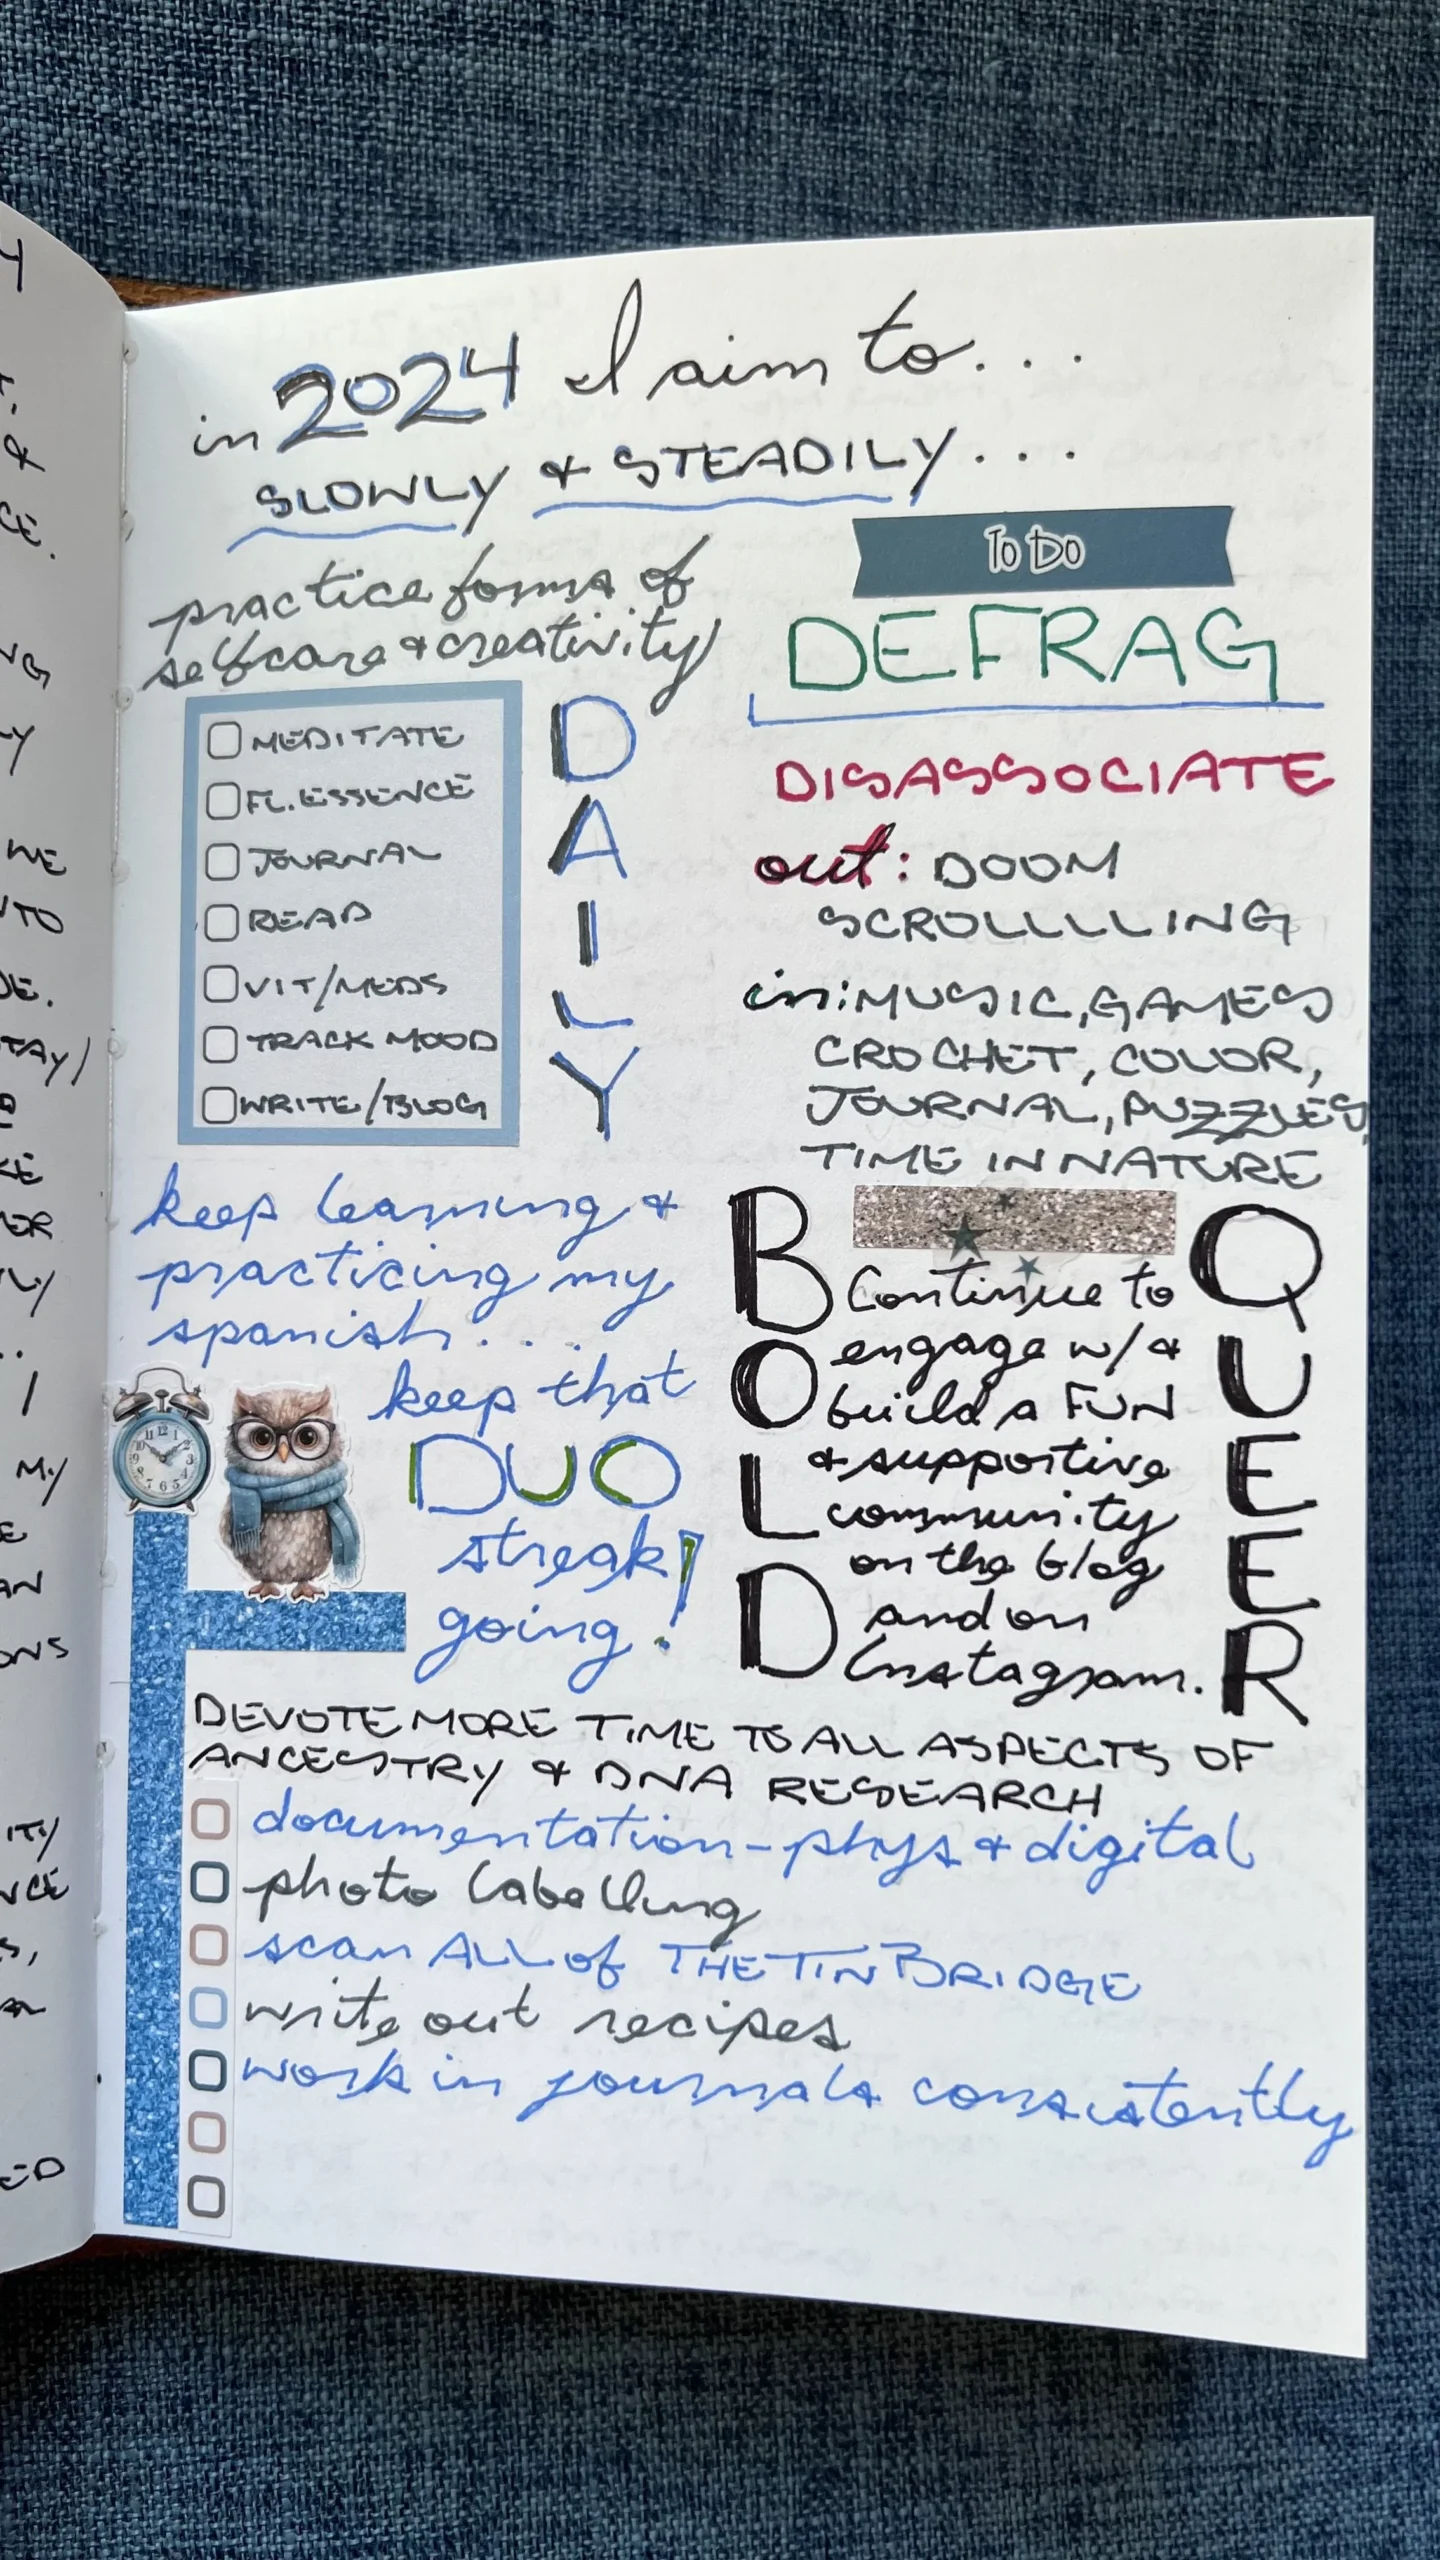 in 2024 I aim to...
SLOWLY & STEADILY...
practice forms of
selfcare & creativity
DAILY
MEDITATE
FL. ESSENCE
JOURNAL
READ
VIT/MEDS
TRACK MOOD
WRITE/BLOG
To Do
DEFRAG
DISASSOCIATE
out: DOOM
SCROLLLLING
in: MUSIC, GAMES
CROCHET, COLOR,
JOURNAL, PUZZLES,
TIME IN NATURE
keep learning &
practicing my
spanish....
keep that
DUO
streak
going!
BOLD
QUEER
Continue to
engage w/ &
build a FUN
& supportive
community
on the blog
and on
Instagram.
DEVOTE MORE TIME TO ALL ASPECTS OF
ANCESTRY & DNA RESEARCH
documentation - phys & digital
photo labelling
scan ALL of THE TIN BRIDGE
write out recipes
work in journals consistently
12
1
2
3
4
5
6
7
8
9
10
11
4
&
CE.
NG
WE
TO
DE.
TAY/
ER
MY
E
AN
ONS
ITY
NCE
S,
ED